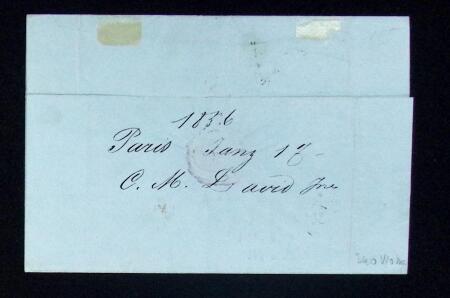 1856
Paris Janz 17 -
C. M. David Jne